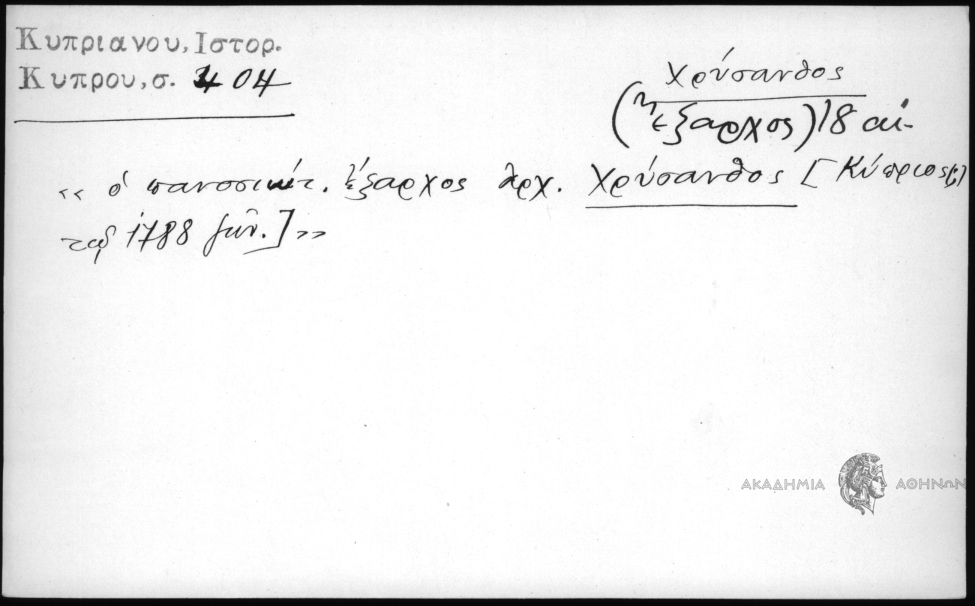 Κυπριανου, Ιστορ.
Κυπρου, σ. 404
Χρύσανθος
(Ἔξαρχος) 18 αἰ.
« ὁ πανοσιώτ. Ἔξαρχος Ἀρχ. Χρύσανθος [Κύπριος(;)
1788 ζῶν.] »
ΑΚΑΔΗΜΙΑ ΑΘΗΝΩΝ